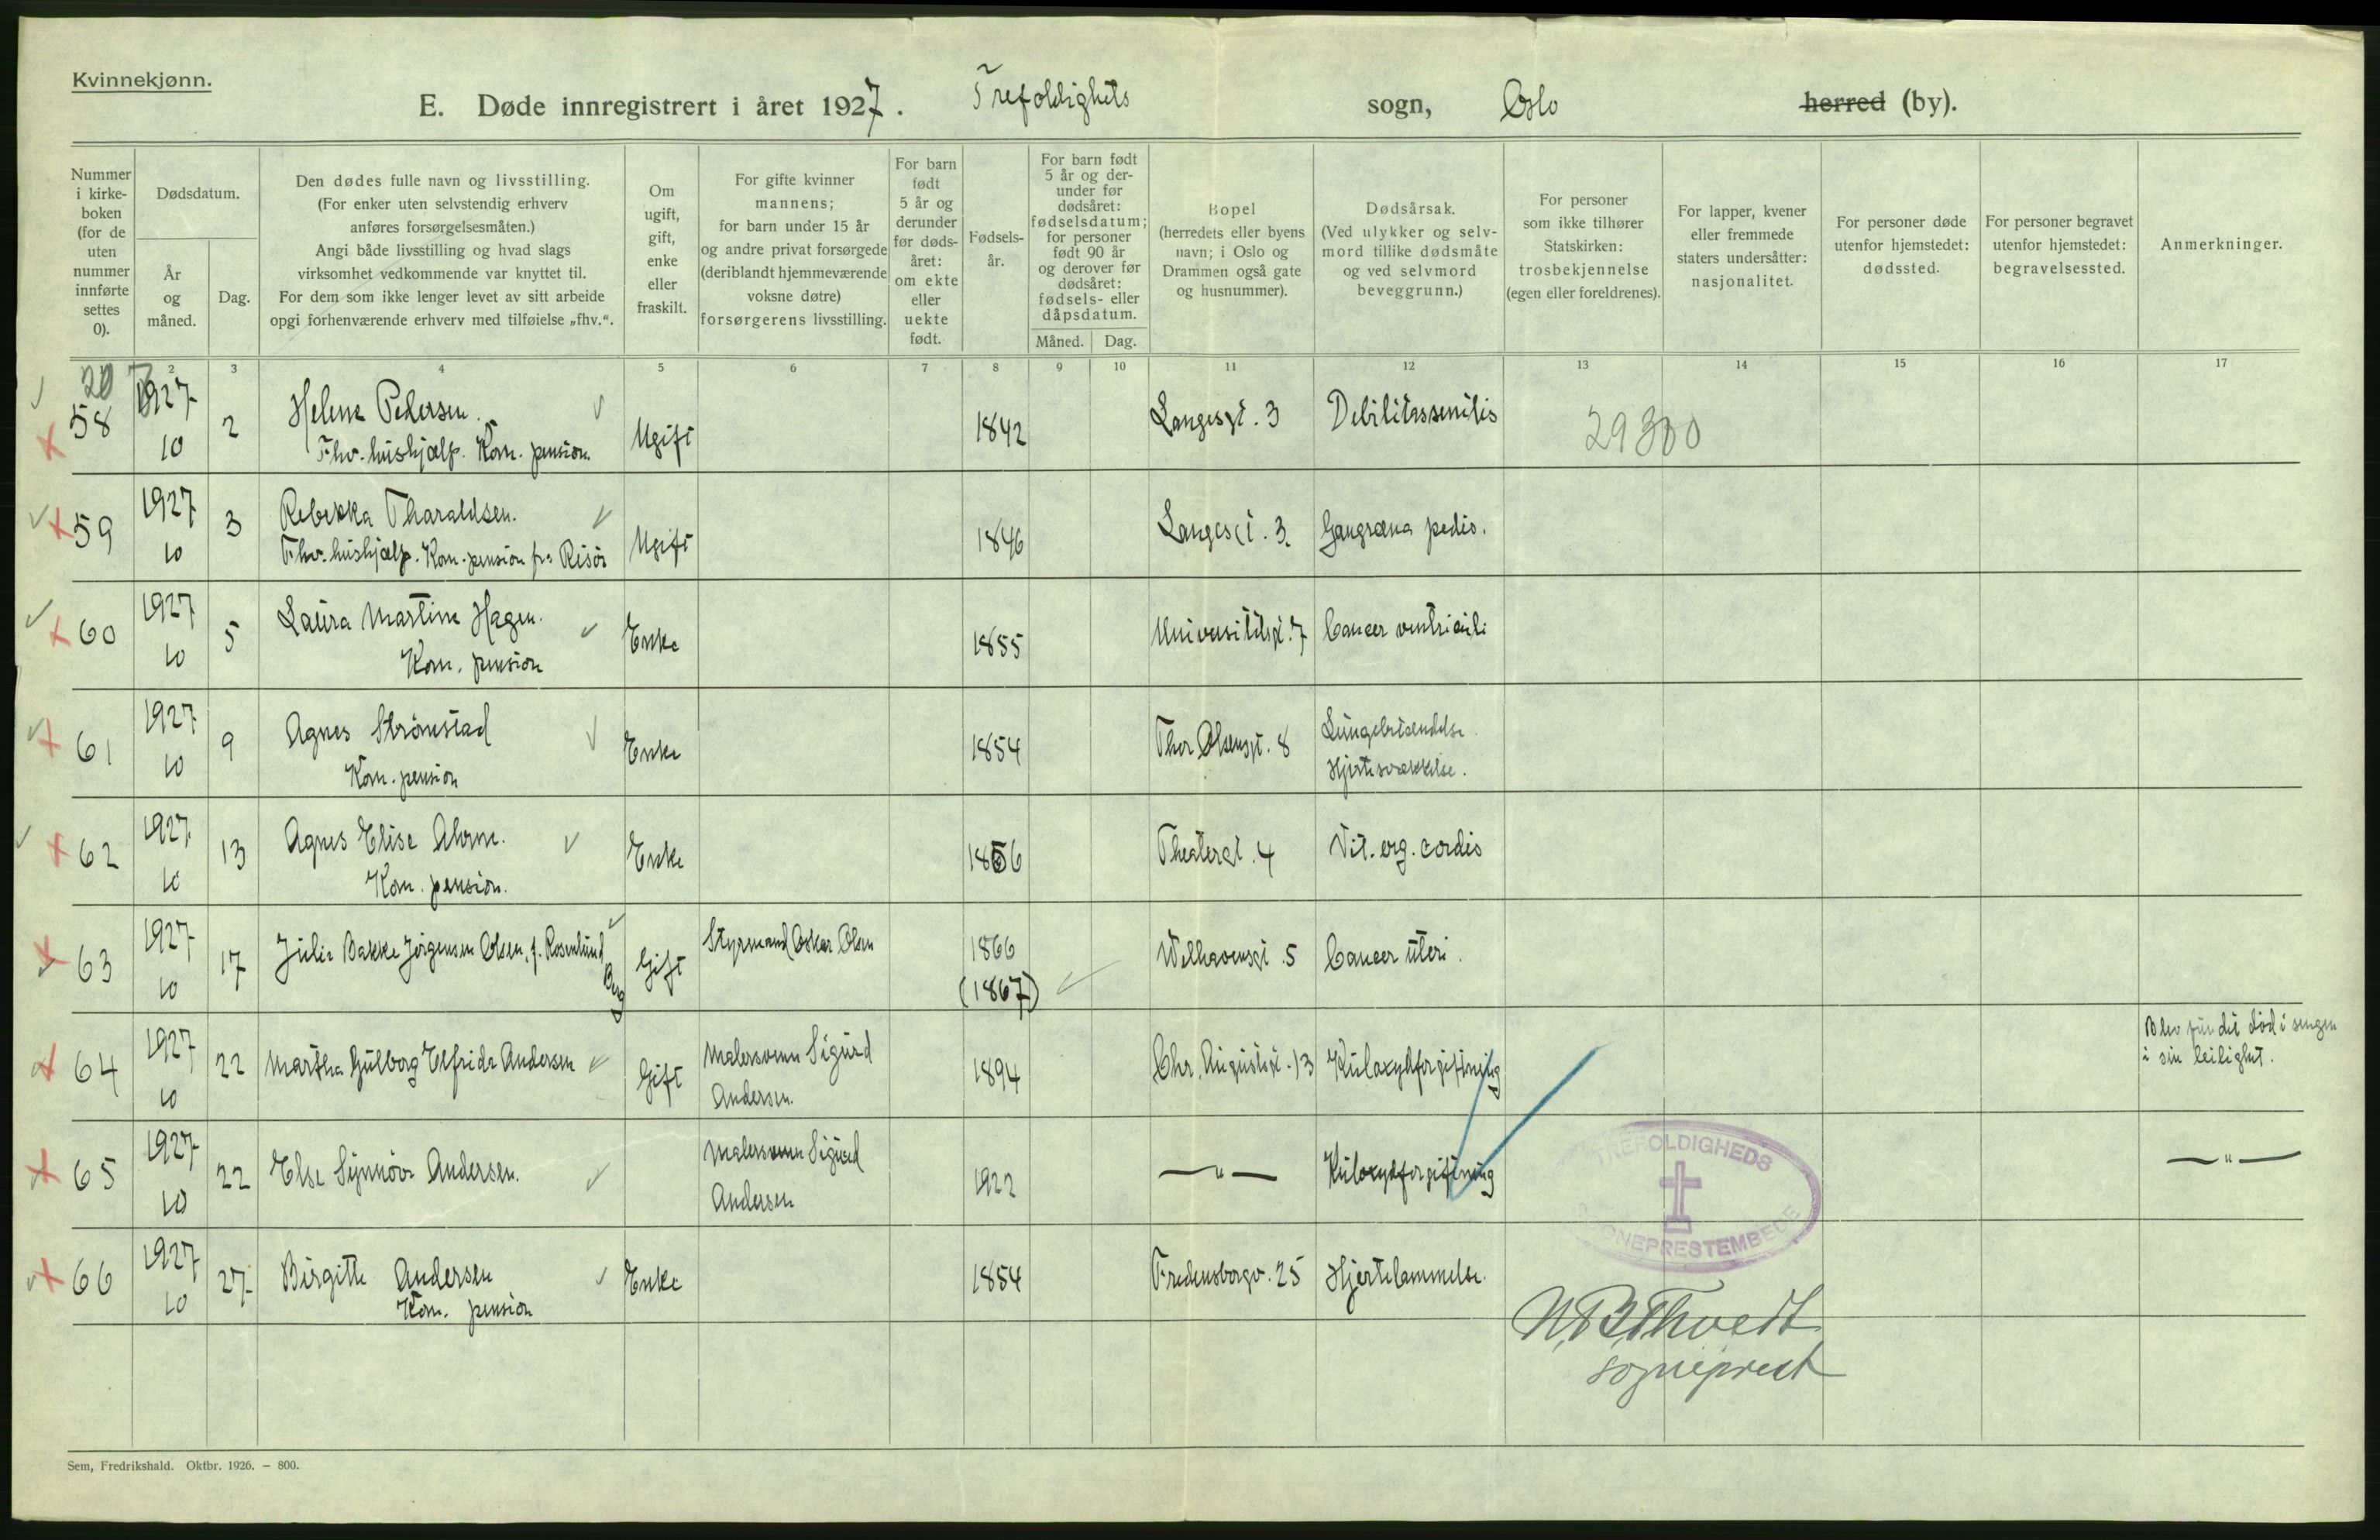 Kvinnekjønn.
E. Døde innregistrert i året 1927. Trefoldighets sogn, Oslo herred (by).
Nummer i kirke- boken (for de uten nummer innførte settes 0).
Dødsdatum.
År og måned.
Dag.
Den dødes fulle navn og livsstilling.
(For enker uten selvstendig erhverv
anføres forsørgelsesmåten.)
Angi både livsstilling og hvad slags
virksomhet vedkommende var knyttet til.
For dem som ikke lenger levet av sitt arbeide
opgi forhenværende erhverv med tilføielse „fhv.“.
Om ugift, gift, enke eller fraskilt.
For gifte kvinner
mannens;
for barn under 15 år
og andre privat forsørgede
(deriblandt hjemmeværende
voksne døtre)
forsørgerens livsstilling.
For barn født 5 år og derunder før døds- året: om ekte eller uekte født.
Fødsels- år.
For barn født
5 år og der-
under før
dødsåret:
fødselsdatum;
for personer
født 90 år
og derover før
dødsåret:
fødsels- eller
dåpsdatum.
Måned. Dag.
Bopel
(herredets eller byens
navn; i Oslo og
Drammen også gate
og husnummer).
Dødsårsak.
(Ved ulykker og selv-
mord tillike dødsmåte
og ved selvmord
beveggrunn.)
For personer
som ikke tilhører
Statskirken:
trosbekjennelse
(egen eller foreldrenes).
For lapper, kvener
eller fremmede
staters undersåtter:
nasjonalitet.
For personer døde
utenfor hjemstedet:
dødssted.
For personer begravet
utenfor hjemstedet:
begravelsessted.
Anmerkninger.
2 3 4 5 6 7 8 9 10 11 12 13 14 15 16 17
58 1927 10 2 Helene Pedersen. Ugift 1842 Langesgt. 3 Debilitas senilis 29380
Fhv. hushjælp. Kom. pension
59 1927 10 3 Rebekka Tharaldsen. Ugift 1846 Langesgt. 3 Gangræna pedis.
Fhv. hushjælp. Kom. pension fra Risør
60 1927 10 5 Laura Martine Hagen. Enke 1855 Universitetsgt. 7 Cancer ventriculi
Kom. pension
61 1927 10 9 Agnes Strønestad Enke 1854 Thor Olsensgt. 8 Lungebetændelse.
Kom. pension Hjertesvækkelse.
62 1927 10 13 Agnes Elise Ahrne. Enke 1856 Theatergt. 4 Vit. org. cordis
Kom. pension.
63 1927 10 17 Julie Bakke Jørgensen Olsen, f. Rosenlund Berg Gift Styrmand Oskar Olsen 1866 (1867) Welhavensgt. 5 Cancer uteri.
64 1927 10 22 Martha Gulborg Elfrida Andersen Gift Malersvenn Sigurd Andersen. 1894 Chr. Augustsgt. 13 Kuloxydforgiftning Blev fundet død i sengen
i sin leilighet.
65 1927 10 22 Else Synnøve Andersen. Malersvenn Sigurd Andersen 1922 — " — Kuloxydforgiftning — " —
66 1927 10 27 Birgitte Andersen Enke 1854 Fredensborgv. 25 Hjertelammelse.
Kom. pension
TREFOLDIGHEDS
SOGNEPRESTEMBEDE
N.B. Thvedt
sogneprest
Sem, Fredrikshald. Oktbr. 1926. – 800.